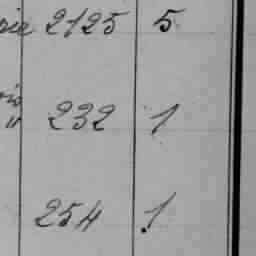 2125 5
232 1
" 
254 1